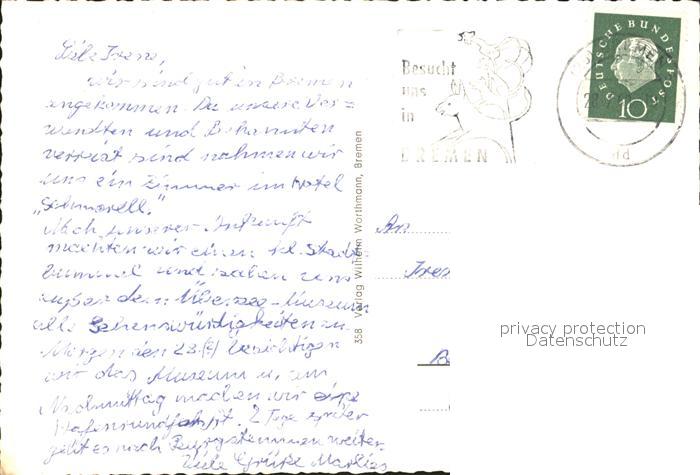 wir sind gut in Bremen
angekommen. Da unsere Ver=
wandten und Bekannten
verreist sind nahmen wir
uns ein Zimmer im Hotel
Nach unserer Ankunft
machten wir einen kl. Stadt-
bummel und sahen uns
außer dem Übersee-Museum
alle Sehenswürdigkeiten an.
Morgen den 23. besichtigen
wir das Museum u. am
Nachmittag machen wir eine
Hafenrundfahrt. 2 Tage später
geht es nach weiter.
Viele Grüße Marlies
358 Verlag Wilhelm Worthmann, Bremen
Besucht
uns
in
BREMEN
DEUTSCHE BUNDESPOST
10
An
privacy protection
Datenschutz